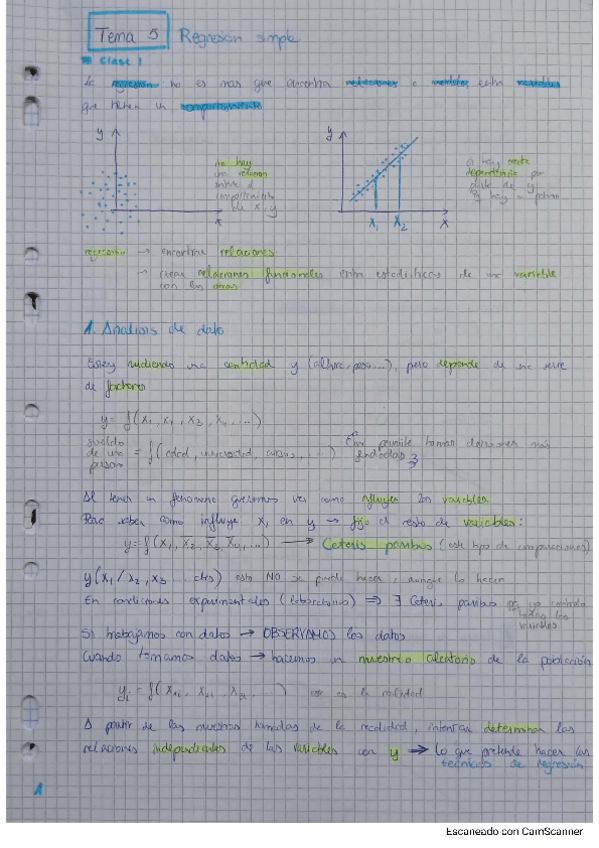 Tema 5 Regresión simple
Clase 1
La regresión no es mas que encontrar relaciones o modelos entre variables
que tienen un comportamiento
y
no hay
una relacion
entre el
comportamiento
de x, y
x
y
x₁ x₂ x
hay cierta
dependencia por
parte de y
regresión → encontrar relaciones
→ crear relaciones funcionales entre estadisticas de una variable
con las otras
1. Analisis de dato
Estoy midiendo una cantidad y (altura, peso...), pero depende de una serie
de factores
y = f(x₁, x₂, x₃, x₄, ...)
sueldo
de una
persona
= f(edad, universidad, curso, ...)
permite tomar decisiones más
fundadas
Al tener un fenomeno queremos ver como influyen las variables.
Para saber como influye x₁ en y → fijo el resto de variables:
y = f(x₁, x̄₂, x̄₃, x̄₄, ...) → Ceteris paribus (este tipo de comparaciones)
y(x₁/x₂, x₃ ... ctes) esto NO se puede hacer, aunque lo hacen
En condiciones experimentales (laboratorios) ⇒ ∃ Ceteris paribus
ya controlo
todas las
variables
Si trabajamos con datos → OBSERVAMOS los datos
Cuando tomamos datos → hacemos un muestreo aleatorio de la población
yᵢ = f(x₁ᵢ, x₂ᵢ, x₃ᵢ, ...) esa es la realidad
A partir de las muestras tomadas de la realidad, intentar determinar las
relaciones independientes de las variables con y ⇒ lo que pretende hacer las
tecnicas de regresión
1
Escaneado con CamScanner